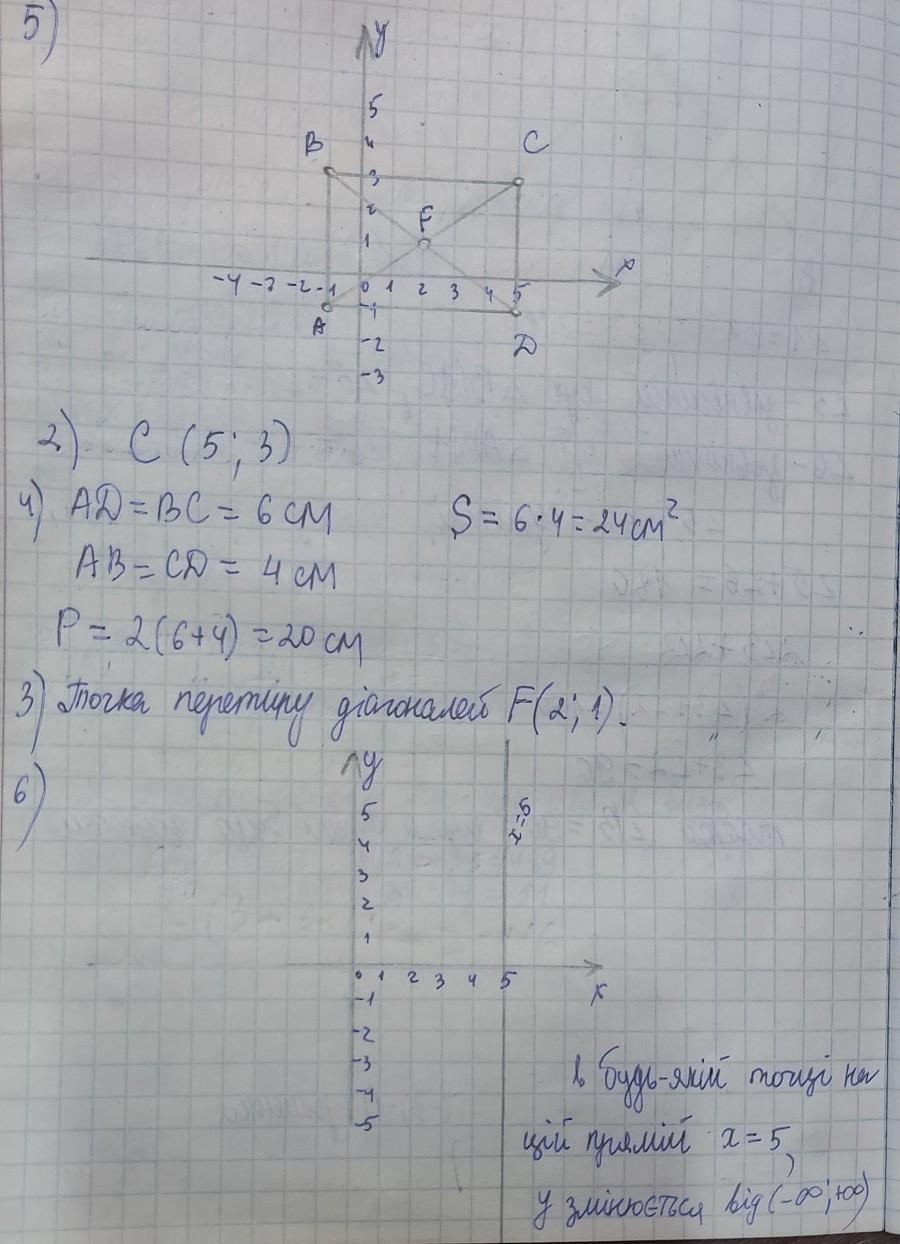 5)
y
5
4
B
C
3
2
F
1
x
-4 -3 -2 -1 0 1 2 3 4 5
A
-1
D
-2
-3
2) C (5; 3)
4) AD = BC = 6 см
S = 6·4 = 24 см²
AB = CD = 4 см
P = 2(6+4) = 20 см
3) Точка перетину діагоналей F(2; 1).
6)
y
x=5
5
4
3
2
1
0 1 2 3 4 5
x
-1
-2
-3
-4
-5
в будь-якій точці на
цій прямій x = 5,
y змінюється від (-∞; +∞)